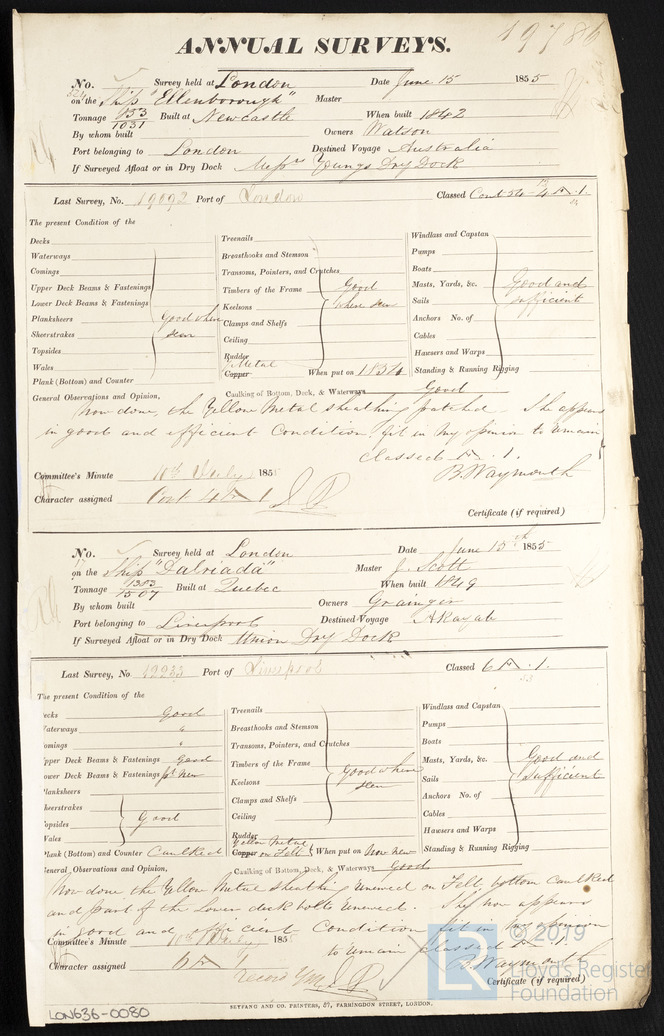 19786
ANNUAL SURVEYS.
No. Survey held at London Date June 15 1855
on the Ship "Ellenborough" Master
Tonnage 953 / 1031 Built at Newcastle When built 1842
By whom built Owners Watson
Port belonging to London Destined Voyage Australia
If Surveyed Afloat or in Dry Dock Messrs Youngs Dry Dock
Last Survey, No. 19092 Port of London Classed Cont 54 4 A. 1
The present Condition of the
Decks
Waterways
Comings
Upper Deck Beams & Fastenings
Lower Deck Beams & Fastenings
Planksheers Good where
Sheerstrakes seen
Topsides
Wales
Plank (Bottom) and Counter
Treenails
Breasthooks and Stemson
Transoms, Pointers, and Crutches
Timbers of the Frame Good
Keelsons where seen
Clamps and Shelfs
Ceiling
Rudder
Y Metal
Copper When put on 1854
Caulking of Bottom, Deck, & Waterways Good
Windlass and Capstan
Pumps
Boats
Masts, Yards, &c. Good and
Sails sufficient
Anchors No. of
Cables
Hawsers and Warps
Standing & Running Rigging
General Observations and Opinion,
Now done, the Yellow Metal sheathing patched. She appears
in good and efficient Condition, fit in my opinion to remain
classed A. 1.
B. Waymouth
Committee's Minute 10th July 1855
Character assigned Cont 4 A 1
Certificate (if required)
No. Survey held at London Date June 15th 1855
on the Ship "Dalriada" Master J. Scott
Tonnage 1383 / 1507 Built at Quebec When built 1849
By whom built Owners Grainger
Port belonging to Liverpool Destined Voyage Akayab
If Surveyed Afloat or in Dry Dock Union Dry Dock
Last Survey, No 19233 Port of Liverpool Classed 6 A. 1.
The present Condition of the
ecks Good
aterways "
omings "
pper Deck Beams & Fastenings Good
ower Deck Beams & Fastenings pt New
lanksheers
heerstrakes
opsides Good
ales
lank (Bottom) and Counter Caulked
Treenails
Breasthooks and Stemson
Transoms, Pointers, and Crutches
Timbers of the Frame
Keelsons Good where
Clamps and Shelfs seen
Ceiling
Rudder
Yellow Metal
Copper on Felt When put on Now New
Caulking of Bottom, Deck, & Waterways Good
Windlass and Capstan
Pumps
Boats
Masts, Yards, &c. Good and
Sails sufficient
Anchors No. of
Cables
Hawsers and Warps
Standing & Running Rigging
eneral Observations and Opinion,
Now done the Yellow Metal sheathing renewed on Felt, bottom caulked
and part of the Lower deck bolts renewed. She now appears
in good and efficient Condition fit in my opinion
to remain classed A 1.
B. Waymouth
Committee's Minute 10th July 1855
Character assigned 6 A 1
Certificate (if required)
SEYFANG AND CO. PRINTERS, 57, FARRINGDON STREET, LONDON.
LON636-0080
© 2019
Lloyd's Register
Foundation